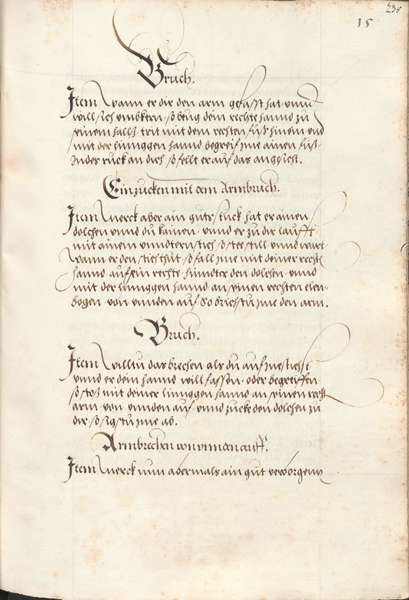 238
15
Bruch.
Item wann er dir den arm gefasst hat vnnd
will /des umbkern /so beug dein rechte hannd zu
seinem halss trit mit dem rechten fuss hinein vnd
mit der linnggen hannd begreif jme ainen fuss
Inder ruck an dich /so felt er auf das angesicht.
Einzucken mit dem Armbruch.
Item merck aber ain guts stuck hat er ainen
dolchen vnnd du kainen. vnnd er zu dir laufft
mit ainem vnndtern stich /so stee still vnnd wart
wann er den stich thut /so fall jme mit deiner rechten
hannd auf sein rechte hinnder den dolchen vnnd
mit der linnggen hannd an seinen rechten elen-
bogen von vnnden auf So brichstu jme den arm.
Bruch.
Item willtu das brechen als du auf jne stichst
vnnd er dein hannd will fassen. oder begreiffen
/so stoss mit deiner linnggen hannd an seinen recht
arm von vnnden auf vnnd zucke den dolchen zu
dir, /so jme ab.
Armbrechen von vnnen auff.
Item merck nun abermals ain gut verborgenn